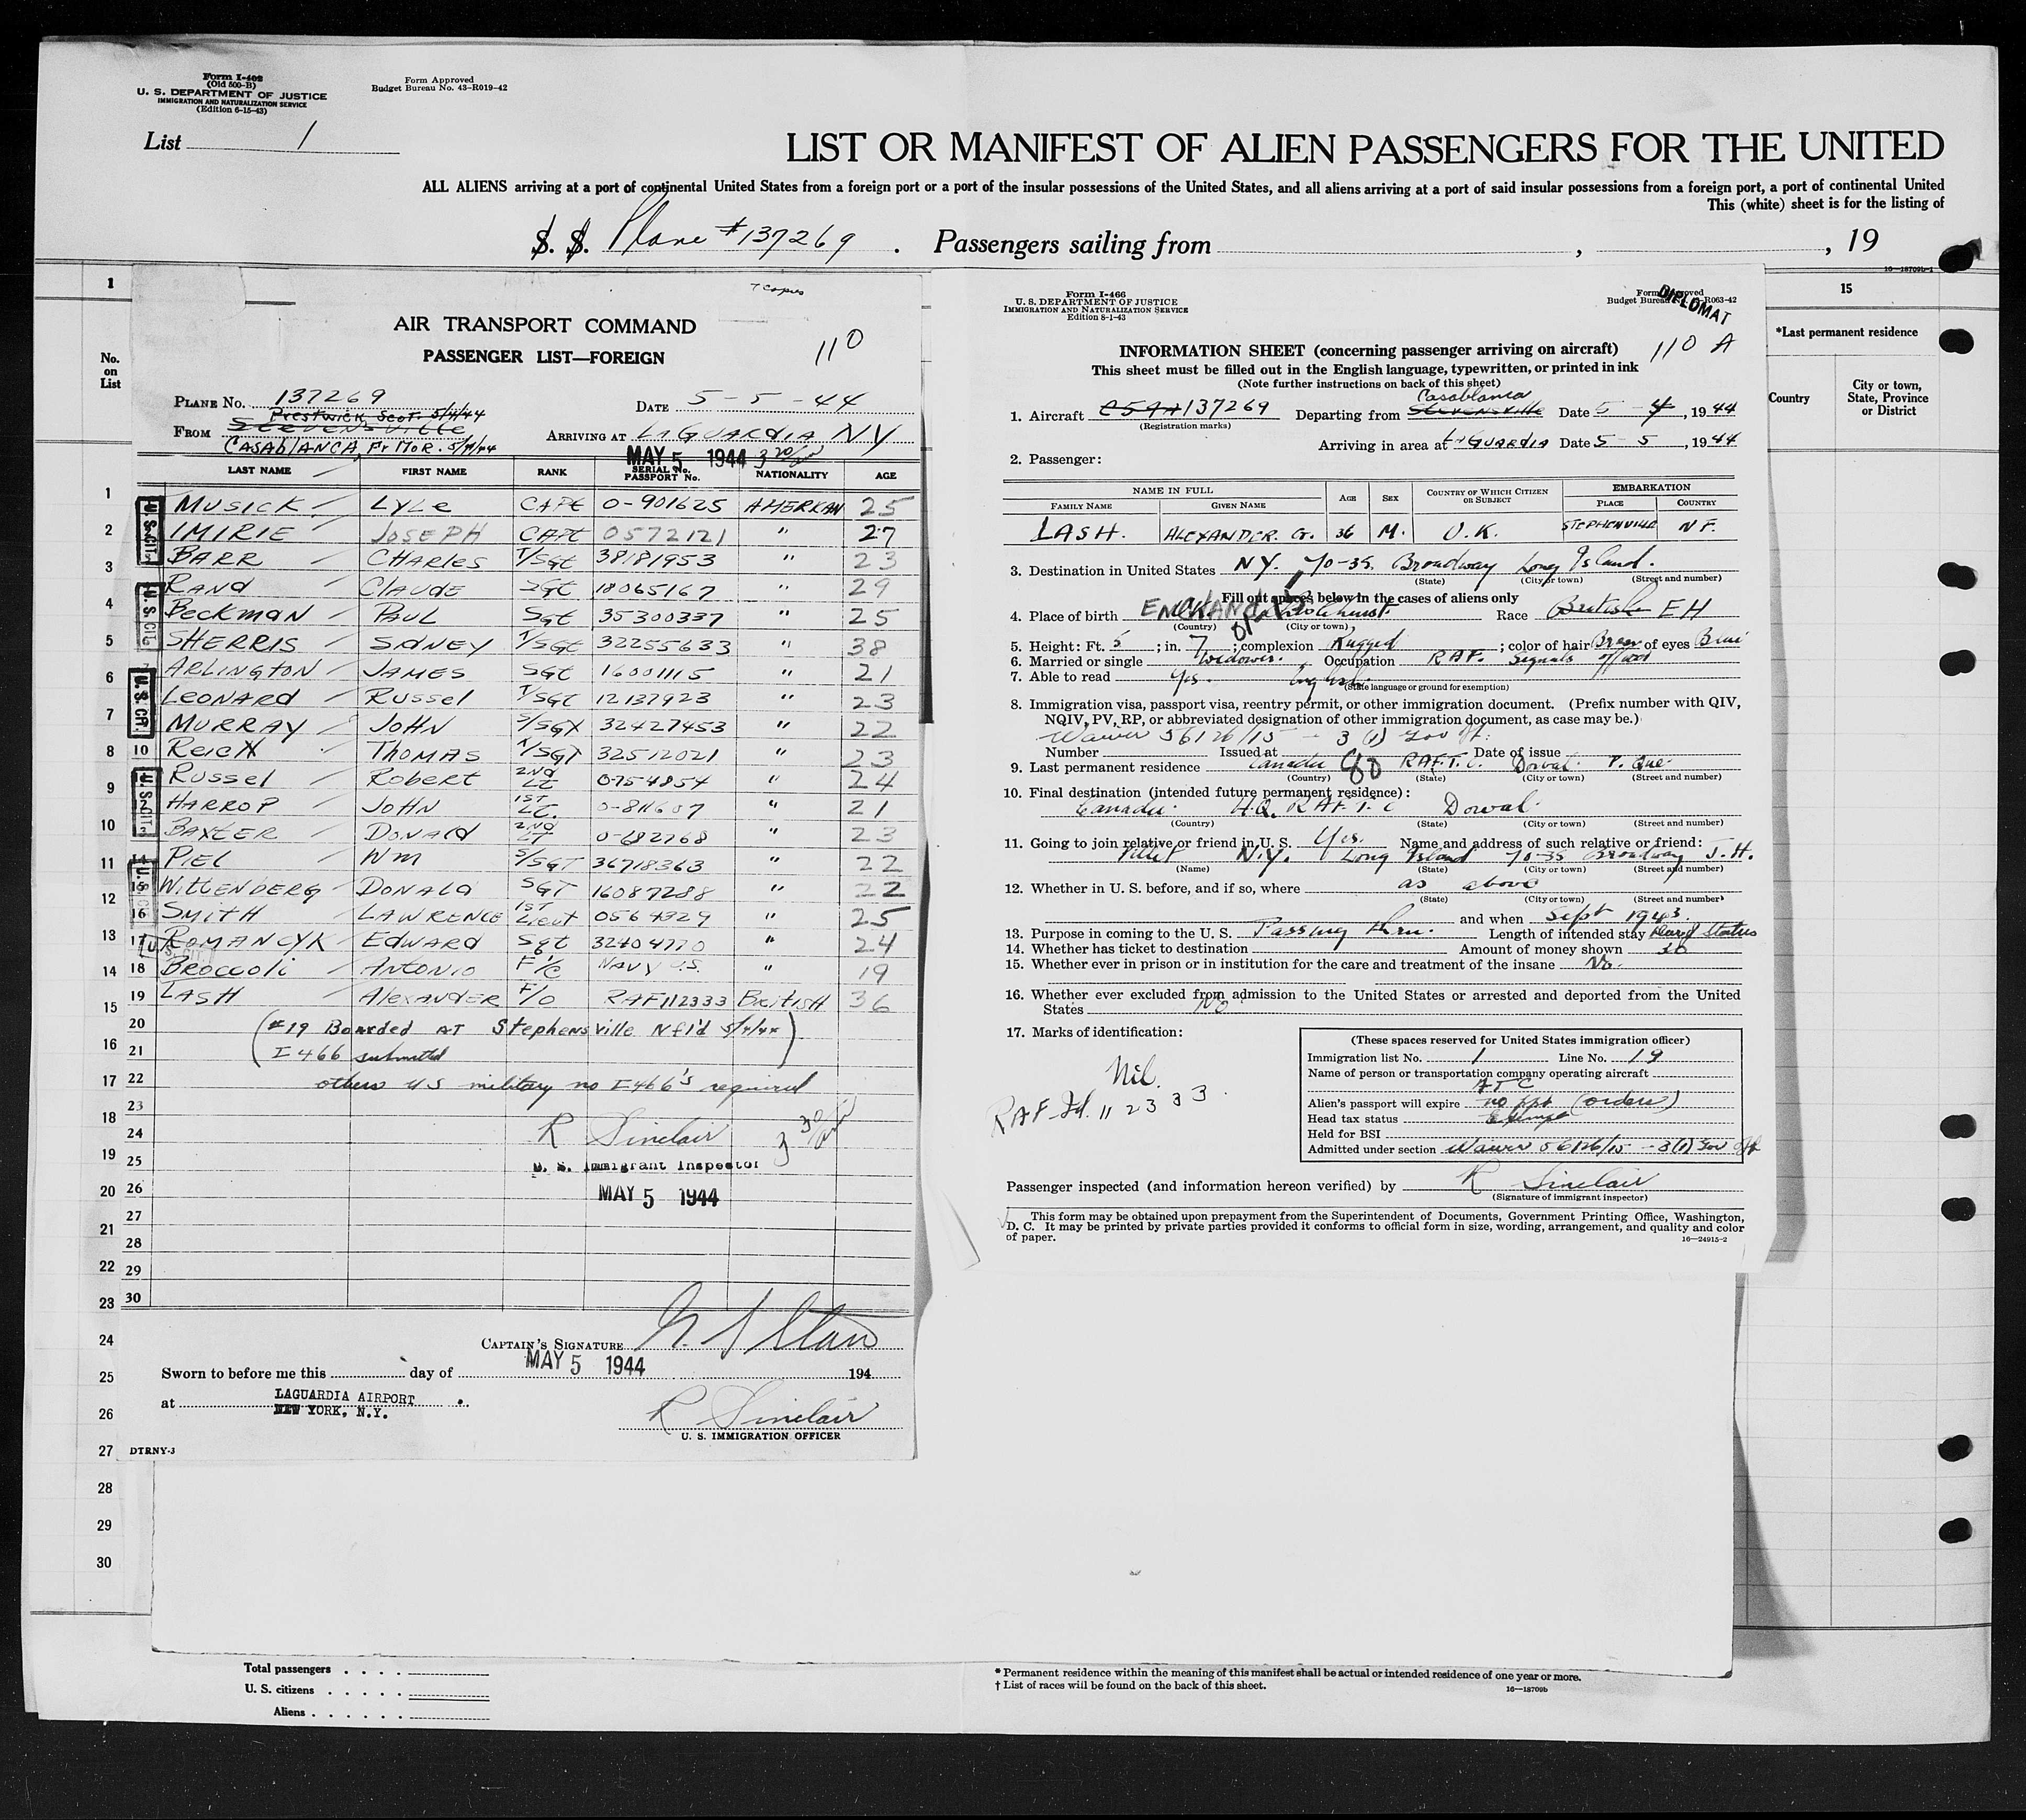 Form I-402
(Old 500-B)
U. S. DEPARTMENT OF JUSTICE
IMMIGRATION AND NATURALIZATION SERVICE
(Edition 6-15-43)
Form Approved
Budget Bureau No. 43-R019-42
List 1
LIST OR MANIFEST OF ALIEN PASSENGERS FOR THE UNITED
ALL ALIENS arriving at a port of continental United States from a foreign port or a port of the insular possessions of the United States, and all aliens arriving at a port of said insular possessions from a foreign port, a port of continental United
This (white) sheet is for the listing of
S. S. Plane #137269 . Passengers sailing from , , 19
16—18709b-1
1
No.
on
List
7 copies
AIR TRANSPORT COMMAND
PASSENGER LIST—FOREIGN
110
PLANE No. 137269
DATE 5-5-44
Prestwick Scot. 5/4/44
FROM Stevensville
ARRIVING AT LAGUARDIA NY
CASABLANCA, Fr MOR. 5/4/44
MAY 5 1944 3 20/am
LAST NAME FIRST NAME RANK SERIAL No. PASSPORT No. NATIONALITY AGE
MUSICK LYLE CAPT 0-901625 AMERICAN 25
IMIRIE JOSEPH CAPT 0572121 " 27
BARR CHARLES T/SGT 38181953 " 23
RAND CLAUDE SGT 18065167 " 29
BECKMAN PAUL SGT 35300337 " 25
SHERRIS SIDNEY T/SGT 32255633 " 38
ARLINGTON JAMES SGT 16001115 " 21
LEONARD RUSSEL T/SGT 12137923 " 23
MURRAY JOHN S/SGT 32427453 " 22
10 REICH THOMAS T/SGT 32512021 " 23
RUSSEL ROBERT 2ND LT 0-754854 " 24
HARROP JOHN 1ST LT. 0-811607 " 21
BAXTER DONALD 2ND LT 0-682768 " 23
PIEL WM S/SGT 36718363 " 22
WITTENBERG DONALD SGT 16087288 " 22
16 SMITH LAWRENCE 1ST Lieut 0564329 " 25
17 ROMANCYK EDWARD Sgt 32404770 " 24
18 BROCCOLI ANTONIO F 1/C NAVY U.S. " 19
19 LASH ALEXANDER F/O RAF112333 BRITISH 36
20 (#19 Boarded AT Stephensville Nf'l'd 5/4/44)
21 I 466 submitted
22 others US military no I466's required
23
24 R Sinclair 3 20/am
25 U. S. Immigrant Inspector
26 MAY 5 1944
27
28
29
30
CAPTAIN'S SIGNATURE
MAY 5 1944
Sworn to before me this day of 194
at LAGUARDIA AIRPORT
NEW YORK, N.Y.
R Sinclair
U. S. IMMIGRATION OFFICER
DTRNY-3
1
2
3
4
5
6
7
8
9
10
11
12
13
14
15
16
17
18
19
20
21
22
23
24
25
26
27
28
29
30
Form I-466
U. S. DEPARTMENT OF JUSTICE
IMMIGRATION AND NATURALIZATION SERVICE
Edition 8-1-43
Form Approved
Budget Bureau R063-42
DIPLOMAT
110 A
INFORMATION SHEET (concerning passenger arriving on aircraft)
This sheet must be filled out in the English language, typewritten, or printed in ink
(Note further instructions on back of this sheet)
Casablanca
1. Aircraft 137269 Departing from Stevensville Date 5 - 4, 1944
(Registration marks)
Arriving in area at LaGUARDIA Date 5 - 5, 1944
2. Passenger:
NAME IN FULL AGE SEX COUNTRY OF WHICH CITIZEN OR SUBJECT EMBARKATION
FAMILY NAME GIVEN NAME PLACE COUNTRY
LASH. ALEXANDER. G. 36 M. U.K. STEPHENVILLE N F.
3. Destination in United States NY. 70-35. Broadway Long Island.
(State) (City or town) (Street and number)
Fill out spaces below in the cases of aliens only
4. Place of birth ENGLAND Race British EH
(Country) (City or town)
5. Height: Ft. 5 ; in. 7 ; complexion Rugged ; color of hair Brown of eyes Blue
6. Married or single Widower. Occupation RAF. Signals officer
7. Able to read Yes. English.
(State language or ground for exemption)
8. Immigration visa, passport visa, reentry permit, or other immigration document. (Prefix number with QIV,
NQIV, PV, RP, or abbreviated designation of other immigration document, as case may be.)
Waiver 56126/15 - 3 (1) Gov Off.
Number Issued at Date of issue
9. Last permanent residence Canada RAF.T.C. Dorval P. Que.
(Country) (State) (City or town) (Street and number)
10. Final destination (intended future permanent residence):
Canada. H.Q. RAF.T.C Dorval.
(Country) (State) (City or town) (Street and number)
11. Going to join relative or friend in U.S. Yes. Name and address of such relative or friend:
N.Y. Long Island 70-35 Broadway J.H.
(Name) (State) (City or town) (Street and number)
12. Whether in U. S. before, and if so, where as above
(State) (City or town) (Street and number)
and when Sept 1943.
13. Purpose in coming to the U. S. Passing thru. Length of intended stay Status
14. Whether has ticket to destination Amount of money shown 20
15. Whether ever in prison or in institution for the care and treatment of the insane No.
16. Whether ever excluded from admission to the United States or arrested and deported from the United
States No
17. Marks of identification:
Nil.
RAF Id. 112333.
(These spaces reserved for United States immigration officer)
Immigration list No. 1 Line No. 19
Name of person or transportation company operating aircraft
ATC
Alien's passport will expire no ppt (orders)
Head tax status Exempt
Held for BSI
Admitted under section Waiver 56126/15 - 3(1) Gov Off
Passenger inspected (and information hereon verified) by R Sinclair
(Signature of immigrant inspector)
This form may be obtained upon prepayment from the Superintendent of Documents, Government Printing Office, Washington,
D. C. It may be printed by private parties provided it conforms to official form in size, wording, arrangement, and quality and color
of paper.
16—24915-2
15
*Last permanent residence
Country
City or town,
State, Province
or District
Total passengers
U. S. citizens
Aliens
* Permanent residence within the meaning of this manifest shall be actual or intended residence of one year or more.
† List of races will be found on the back of this sheet.
16—18709b